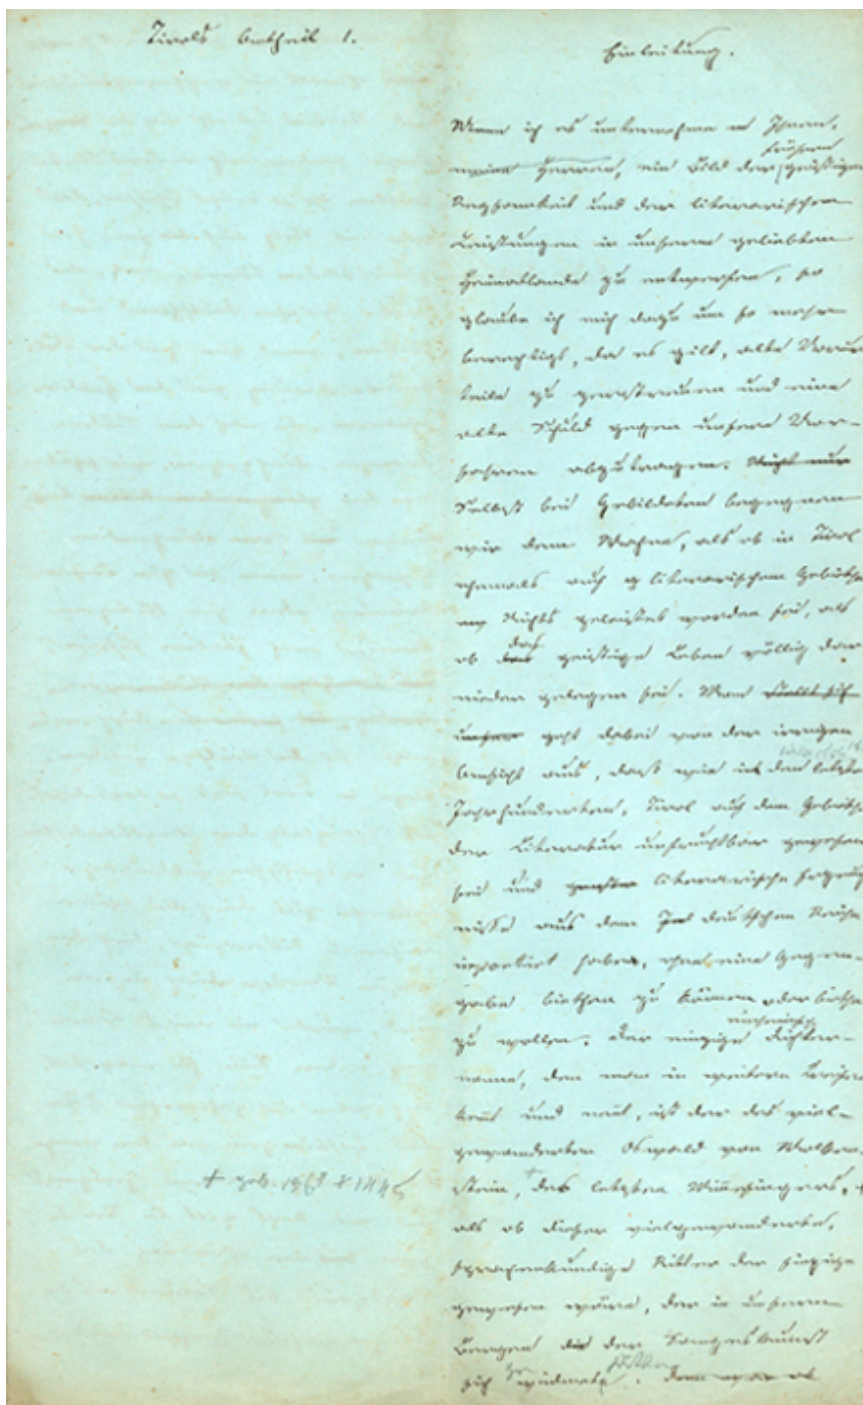 Tirols Antheil I.
Einleitung.
Wenn ich es unternehme Ihnen,
meine Herren, ein Bild der frühern geistigen
Regsamkeit und der literarischen
Leistungen in unserm geliebten
Heimatlande zu entwerfen, so
glaube ich mich dazu um so mehr
berechtigt, da es gilt, alte Vorur-
teile zu zerstreuen und eine
alte Schuld gegen unsere Vor-
fahren abzutragen. Nicht nur
Selbst bei Gebildeten begegnen
wir dem Wahne, als ob in Tirol
ehemals auf literarischem Gebiethe
Nichts geleistet worden sei, als
ob das geistige Leben völlig dar-
nieder gelegen sei. Man stellt sich
unsere geht dabei von der irrigen
Ansicht aus, dass wie in den letzten
Jahrhunderten, Tirol auf dem Gebieth
der Literatur unfruchtbar gewesen
sei und literarische Erzeug
nisse aus dem deutschen Reiche
importirt habe, ohne eine Gegen-
gabe biethen zu können oder biethen
zu wollen. Der einzige Dichter-
name, den man in weitern Kreisen
kent und nent, ist der des viel-
gewanderten Oswald von Wolken-
stein, + des letzten Minesingers,
+ geb. 1367 + 1445
als ob dieser vielgewanderte,
sprachenkundige Ritter der einzige
gewesen wäre, der in unseren
Bergen der Sangeskunst
sich gewidmet hätte. Denn war ob